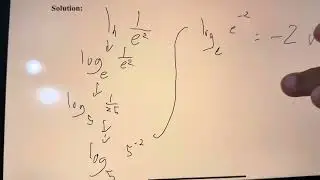 Solution:
ln 1/e²
↓
log_e 1/e²
↓
log_5 1/25
↓
log_5 5⁻²
log_e e⁻² = -2